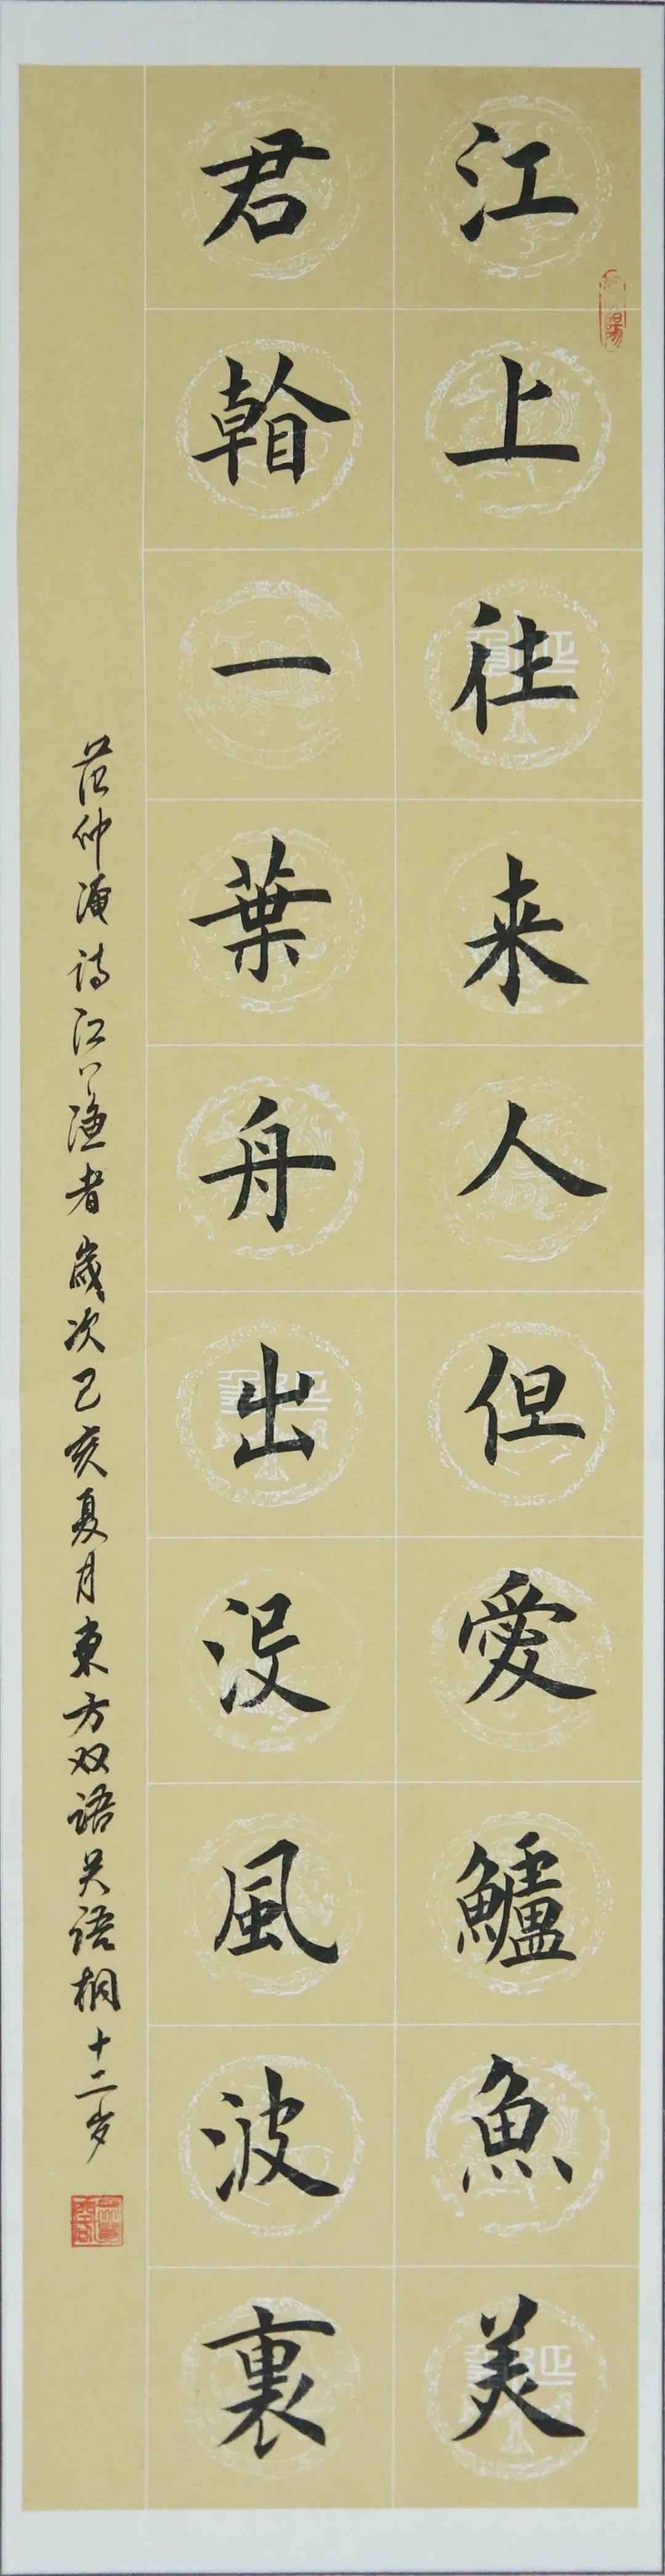 江上往来人但愛鱸魚美
君㪴一葉舟出没風波裏
范仲淹诗江上渔者歲次己亥夏月東方双语吴语桐十二岁